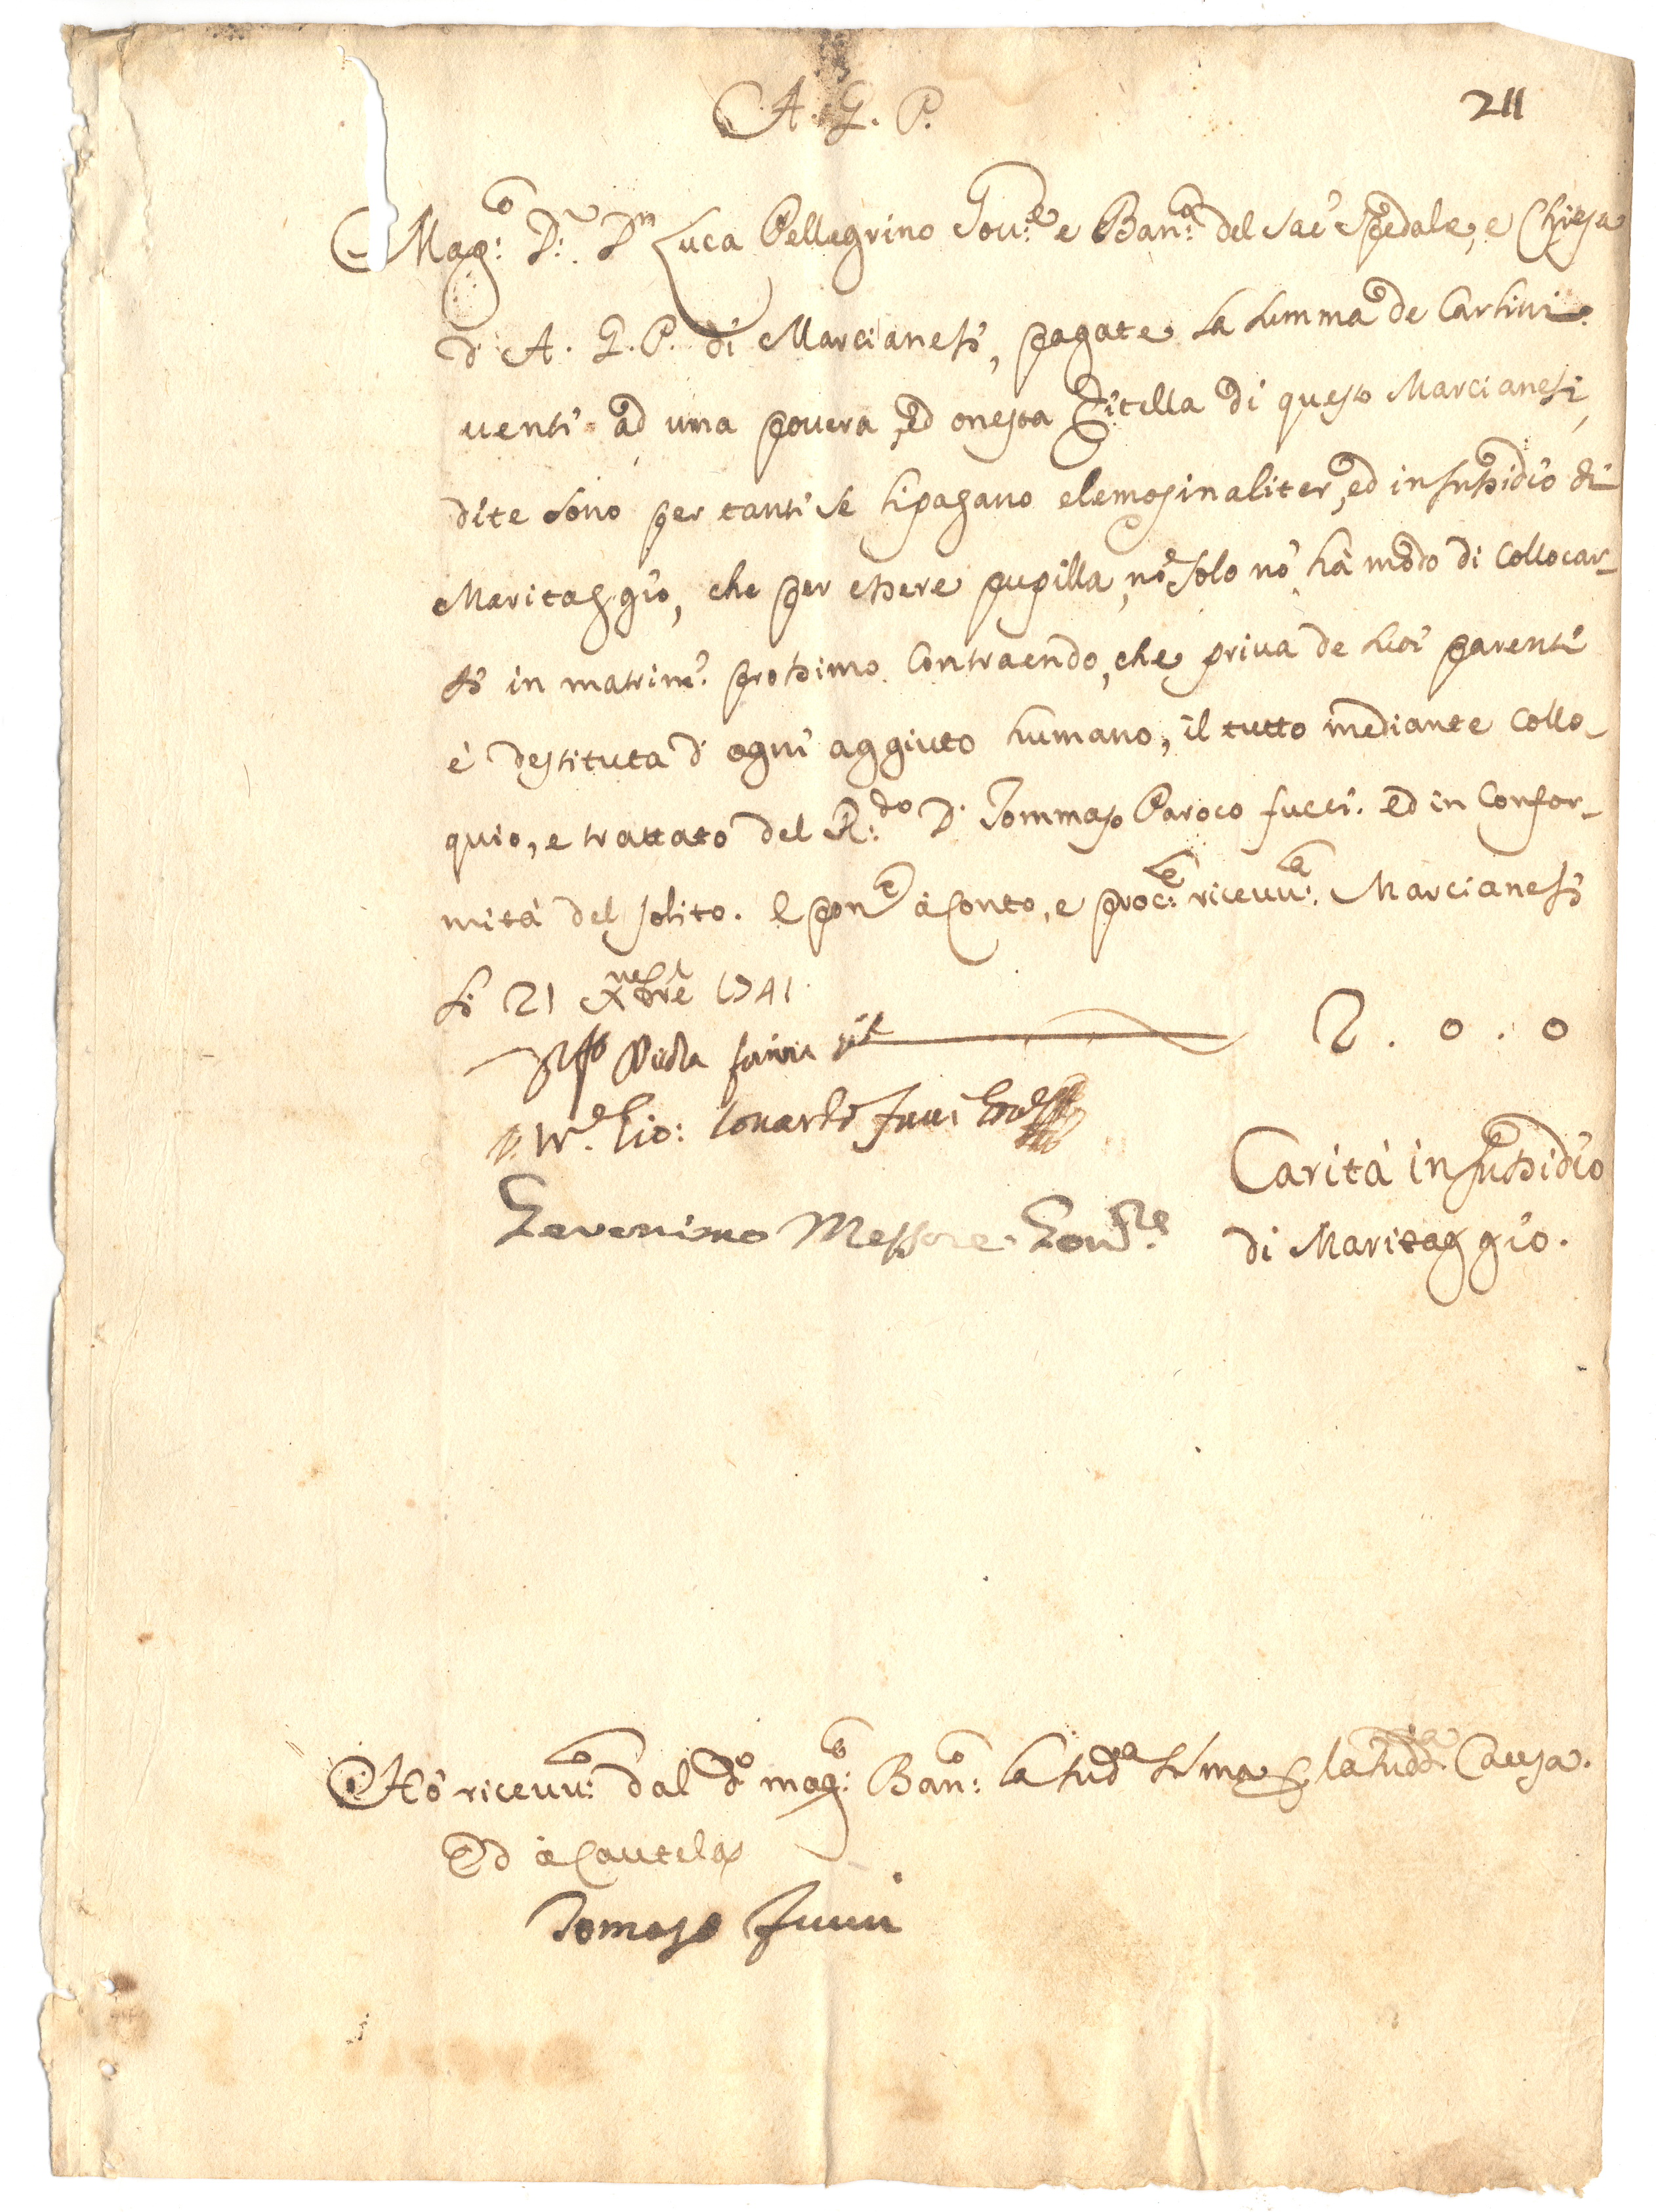 A. G. P.
211
Mag:co D:r Dn Luca Pellegrino Gov:re e Ban:o del Sac̃ Spedale, e Chiesa
d' A. G. P. di Marcianesi, pagate la summa de Carlini
venti ad una povera, ed onesta Zitella di questo Marcianesi,
dite sono per tanti se li pagano elemosinaliter, ed in sussidio di
Maritaggio, che per essere pupilla, nõ solo nõ hà modo di collocar-
si in matrim:o prossimo contraendo, che priva de suoi parenti
è destituta d' ogni aggiuto humano, il tutto mediante collo-
quio, e trattato del R:do D. Tommaso Paroco fucci. ed in confor-
mità del solito. e pon.e à conto, e proc:e ricevu:a Marcianesi
li 21 Xmbre 1741
2 . 0 . 0
Gio: Gov.re
Carità in sussidio
Geronimo Messore Gov.re
di Maritaggio.
Hò ricevu:o dal d:o mag:co Ban:o la sud:a sũma p la sud:a Causa.
Ed à Cautela
Tomaso fucci